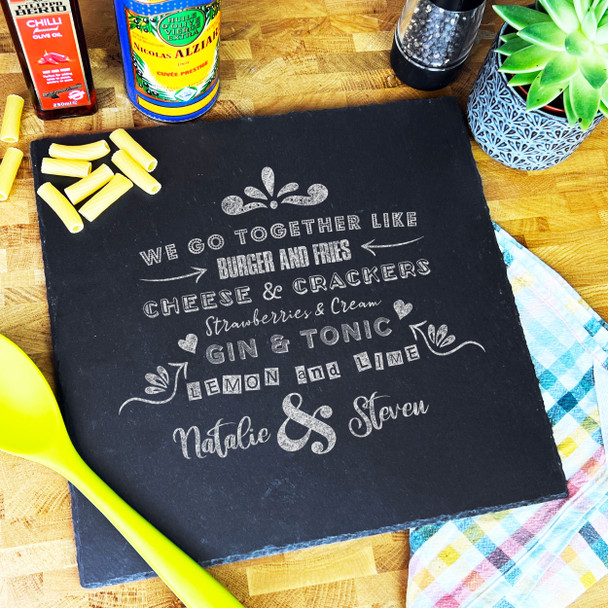 BERIO
CHILLI
flavoured
OLIVE OIL
250ml
NICOLAS ALZIARI
CUVÉE PRESTIGE
WE GO TOGETHER LIKE
BURGER AND FRIES
CHEESE & CRACKERS
Strawberries & Cream
GIN & TONIC
LEMON and LIME
Natalie & Steven